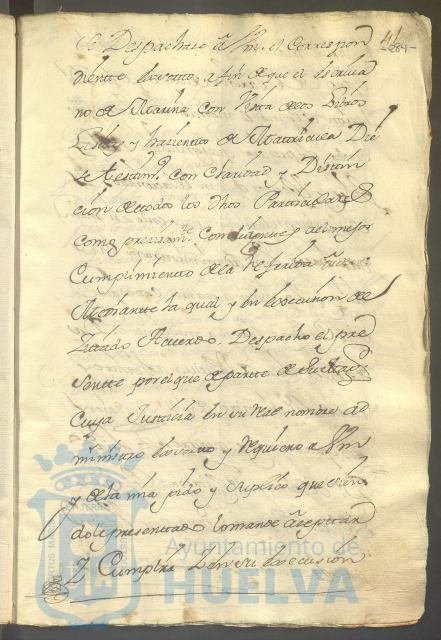 Se Despachase a Vm. el Correspon
diente Exorto, a fin de que el Escriva
no de Marina con Vista de los Libros
Listas y haziento de Matricula Die
se testim.º con Claridad y Distin
ción de todos los Dhos Particulares
como precisam.te Conducente y al mejor
Cumplimiento de la Referida
Mediante la qual y en Execucion de
Zitado Acuerdo. Despacho el pre
sente por el que de parte de su Mag.d
Cuya Justicia en su Real nombre ad
ministro Exorto y Requiero a Vm
y de la mia pido y suplico que sien
dole presentado lo mande aceptar
Z Cumplir En su Execusion
41
284
Ayuntamiento de
HUELVA